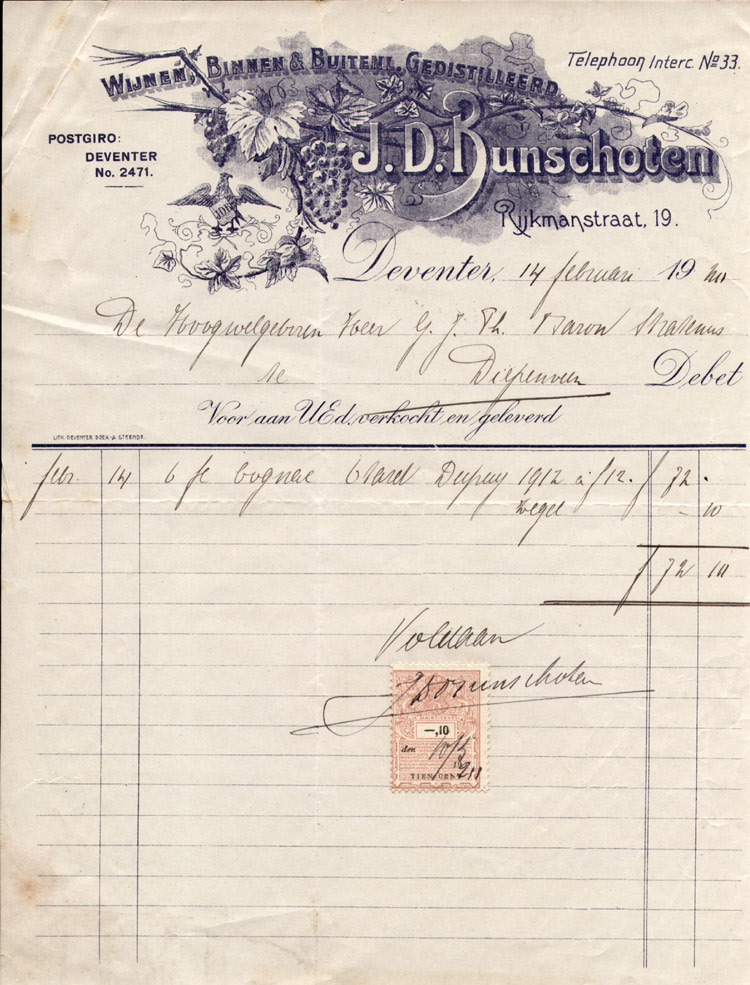 WIJNEN, BINNEN & BUITENL. GEDISTILLEERD
Telephoon Interc. No 33.
POSTGIRO:
DEVENTER
No. 2471.
J. D. Bunschoten
Rijkmanstraat, 19.
Deventer, 14 februari 19
De Hoogwelgeboren Heer G. J. Th. Baron
te Diepenveen Debet
Voor aan UEd. verkocht en geleverd
LITH. DEVENTER BOEK- & STEENDR.
febr. 14 6 fl Cognac Otard Dupuy 1912 à f 12. f 72.
zegel - 10
f 72 10
Voldaan
JDBunschoten
—,10
den 10/3
TIEN CENT